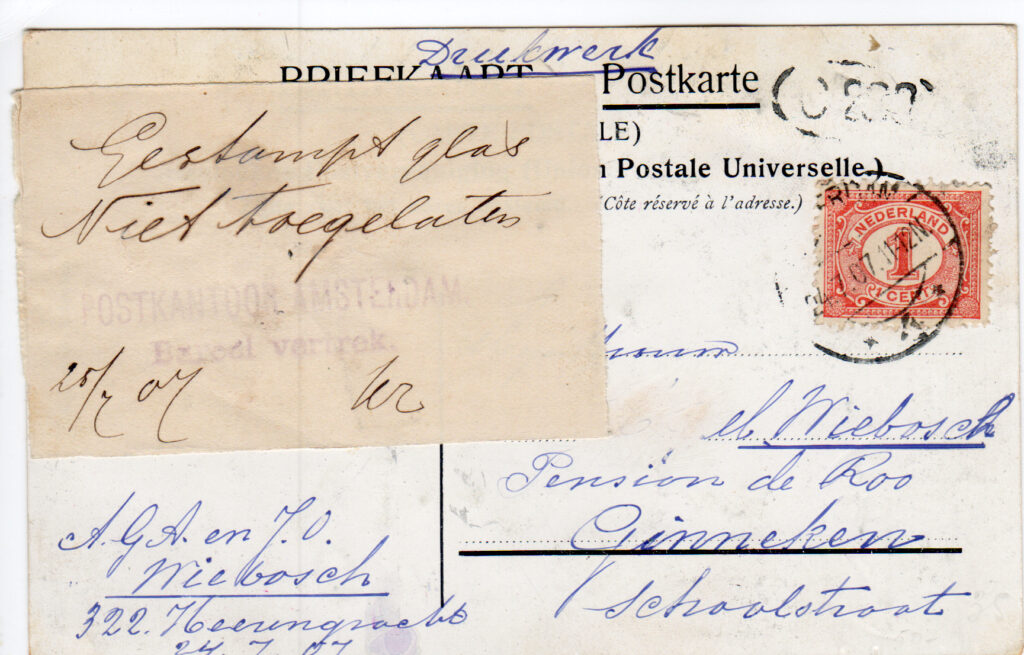 Drukwerk
BRIEFKAART Postkarte
LE)
n Postale Universelle.)
(Côte réservé à l'adresse.)
Gestampt glas
Niet toegelaten
POSTKANTOOR AMSTERDAM.
Expeditie vertrek.
25/7 07
NEDERLAND
1
CENT
07.11-12N
el Wiebosch
Pension de Roo
Ginneken
Schoolstraat
A.G.A. en J.O.
Wiebosch
322. Heerengracht
24.7.07